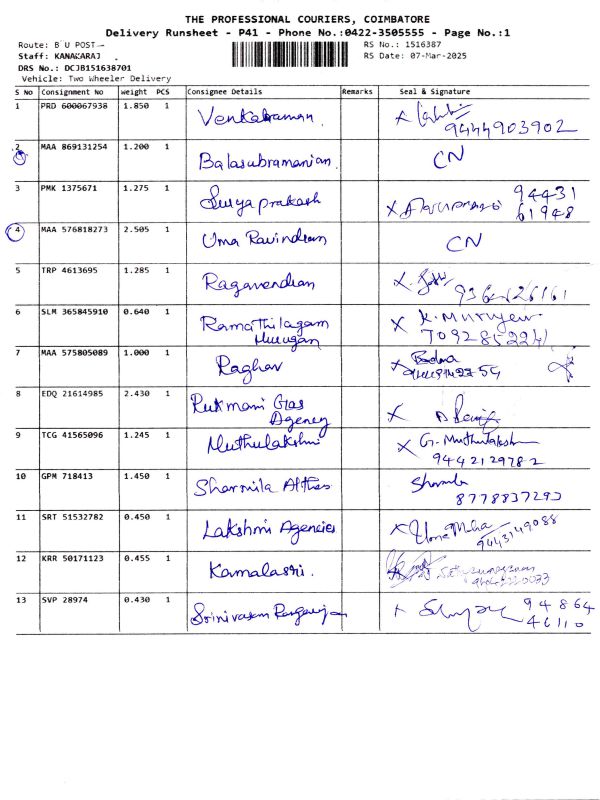 THE PROFESSIONAL COURIERS, COIMBATORE
Delivery Runsheet - P41 - Phone No.:0422-3505555 - Page No.:1
Route: B U POST RS No.: 1516387
Staff: KANAKARAJ RS Date: 07-Mar-2025
DRS No.: DCJB151638701
Vehicle: Two Wheeler Delivery
S No Consignment No Weight PCS Consignee Details Remarks Seal & Signature
1 PRD 600067938 1.850 1 Venkatraman. X
9444903902
2 MAA 869131254 1.200 1 Balasubramanian. CN
3 PMK 1375671 1.275 1 Suryaprakash X 94431
61948
4 MAA 576818273 2.505 1 Uma Ravindran CN
5 TRP 4613695 1.285 1 Ragavendran X
6 SLM 365845910 0.640 1 Ramathilagam X K. Murugan
Murugan 7092852241
7 MAA 575805089 1.000 1 Raghav X
8 EDQ 21614985 2.430 1 Rukmani Gas X
Agency
9 TCG 41565096 1.245 1 Muthulakshmi X G. Muthulakshmi
9442129782
10 GPM 718413 1.450 1 Sharmila Althas
8778837293
11 SRT 51532782 0.450 1 Lakshmi Agencies X
9443149088
12 KRR 50171123 0.455 1 Kamalasri.
13 SVP 28974 0.430 1 Srinivasan X 94864
46110